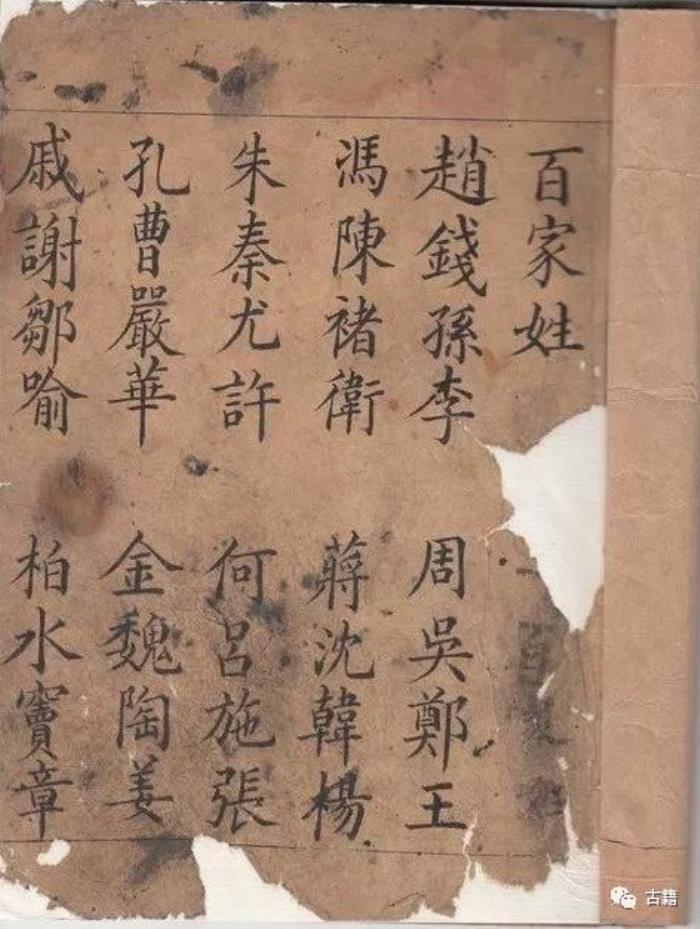 百家姓
趙錢孫李
周吳鄭王
馮陳褚衛
蔣沈韓楊
朱秦尤許
何呂施張
孔曹嚴華
金魏陶姜
戚謝鄒喻
柏水竇章
古籍